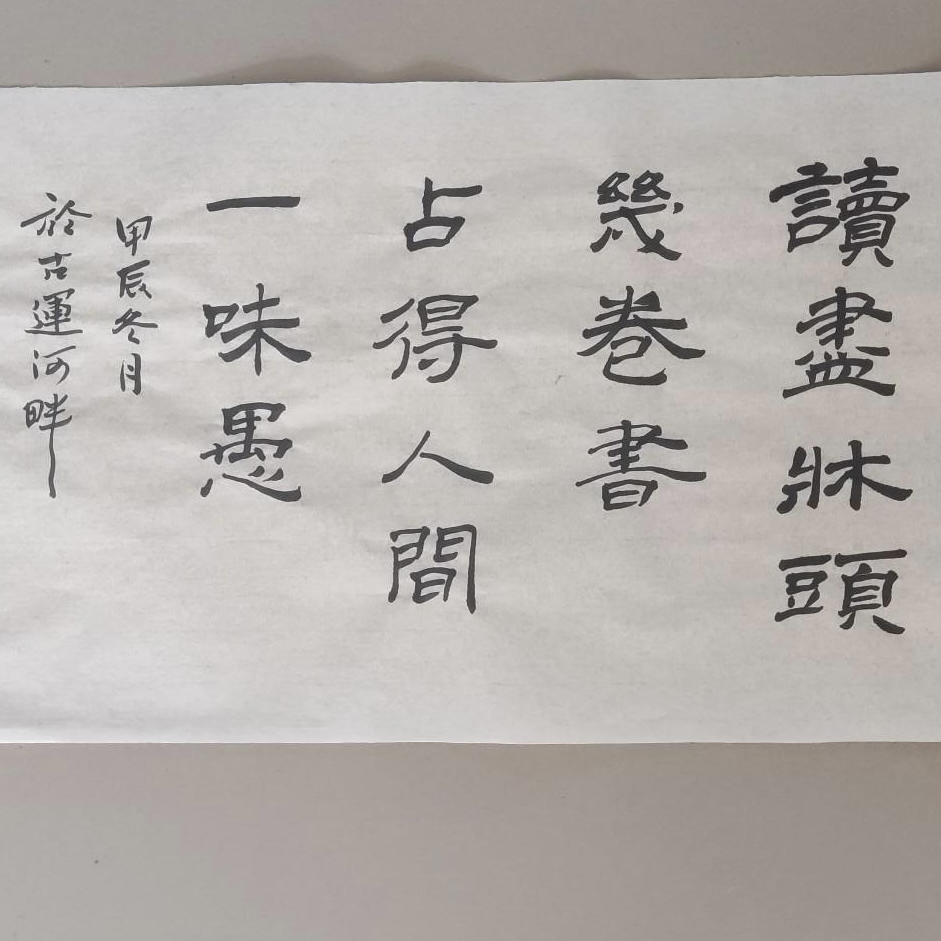 讀盡牀頭
幾卷書
占得人間
一味愚
甲辰冬月
於古運河畔